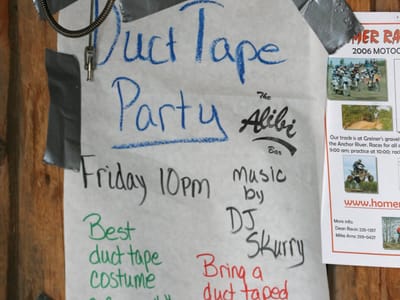 Duct Tape
Party
The
Alibi
Bar
Friday 10pm
music
by
DJ
Skurry
Best
duct tape
costume
Bring a
duct taped
MER RA
2006 MOTOC
Our track is at Greiner's gravel
the Anchor River. Races for all
9:00 am; practice at 10:00; ro
www.homer
More info: